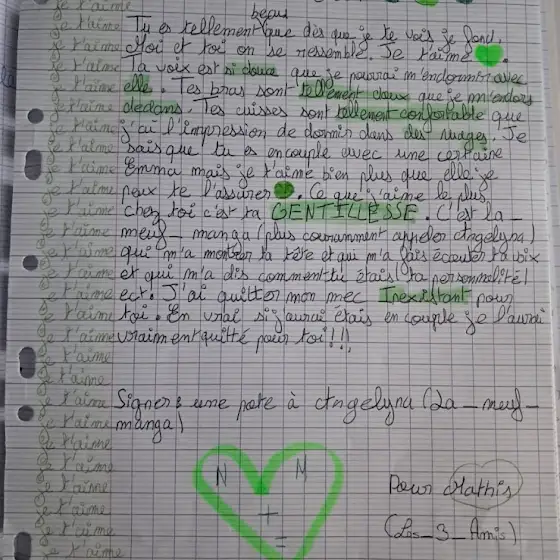 je t'aime
beau
je t'aime Tu es tellement que dès que je te vois je fond.
je t'aime Moi et toi on se ressemble. Je t'aime 💚.
je t'aime Ta voix est si douce que je pourrai m'endormir avec
je t'aime elle. Tes bras sont tellement doux que je m'endors
je t'aime dedans. Tes cuisses sont tellement confortable que
je t'aime j'ai l'impression de dormir dans des nuages. Je
je t'aime sais que tu es en couple avec une certaine
je t'aime Emma mais je t'aime bien plus que elle je
je t'aime peux te l'assurer 💚. Ce que j'aime le plus
je t'aime chez toi c'est ta GENTILLESSE. C'est la_
je t'aime meuf_manga (plus couramment appeler Angelyna)
je t'aime qui m'a montrer ta tête et qui m'a fais écouter ta voix
je t'aime et qui m'a dis comment tu étais (ta personnalité)
je t'aime ect. J'ai quitter mon mec Inexistant pour
je t'aime toi. En vrai si j'aurai étais en couple je l'aurai
je t'aime vraiment quitté pour toi!!!
je t'aime
je t'aime
je t'aime Signer : une pote à Angelyna (La_meuf_
je t'aime manga)
je t'aime
je t'aime
je t'aime
je t'aime
je t'aime
je t'aime
je t'aime
N M
+
=
Pour Mathis
(Les_3_Amis)